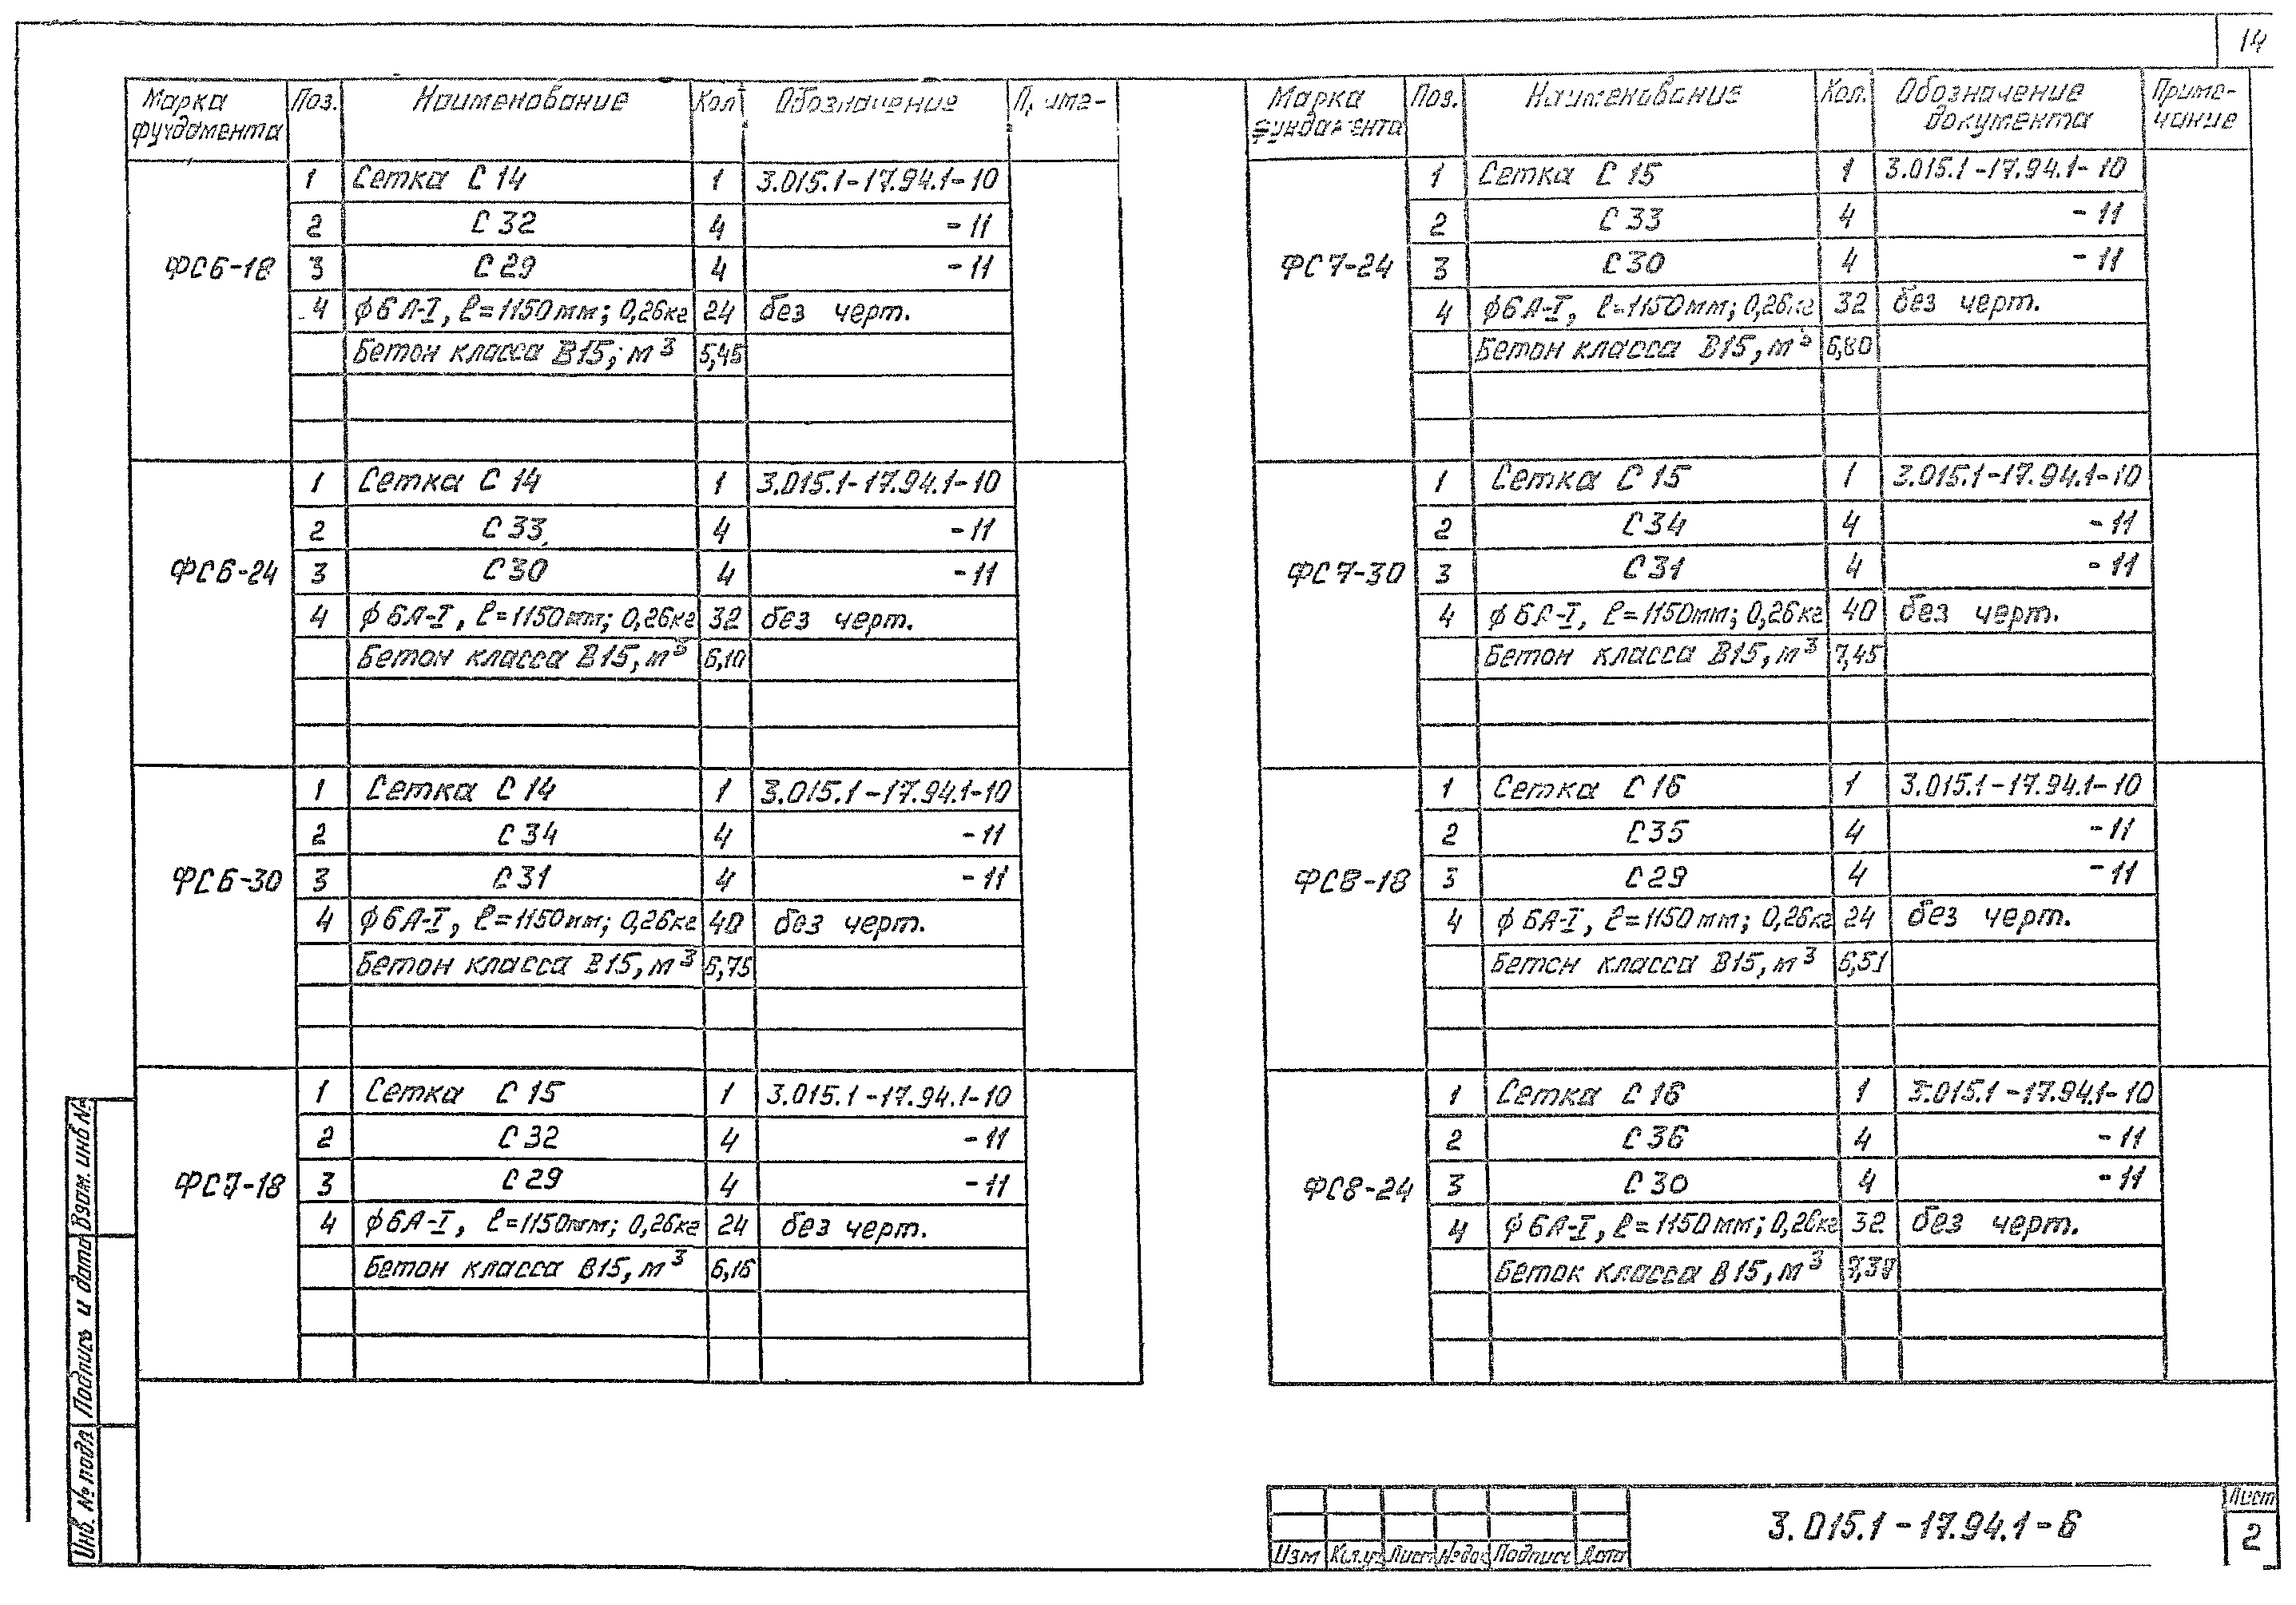 14
Марка фундамента Поз. Наименование Кол Обозначение
ФС6-18
1 Сетка С 14 1 3.015.1-17.94.1-10
2 С 32 4 -11
3 С 29 4 -11
4 ϕ6А-I, ℓ=1150мм; 0,26кг 24 без черт.
Бетон класса В15; м³ 5,45
ФС6-24
1 Сетка С 14 1 3.015.1-17.94.1-10
2 С 33 4 -11
3 С 30 4 -11
4 ϕ6А-I, ℓ=1150мм; 0,26кг 32 без черт.
Бетон класса В15, м³ 6,10
ФС6-30
1 Сетка С 14 1 3.015.1-17.94.1-10
2 С 34 4 -11
3 С 31 4 -11
4 ϕ6А-I, ℓ=1150мм; 0,26кг 40 без черт.
Бетон класса В15, м³ 6,75
ФС7-18
1 Сетка С 15 1 3.015.1-17.94.1-10
2 С 32 4 -11
3 С 29 4 -11
4 ϕ6А-I, ℓ=1150мм; 0,26кг 24 без черт.
Бетон класса В15, м³ 6,16
Марка фундамента Поз. Наименование Кол. Обозначение документа Примечание
ФС7-24
1 Сетка С 15 1 3.015.1-17.94.1-10
2 С 33 4 -11
3 С 30 4 -11
4 ϕ6А-I, ℓ=1150мм; 0,26кг 32 без черт.
Бетон класса В15, м³ 6,80
ФС7-30
1 Сетка С 15 1 3.015.1-17.94.1-10
2 С 34 4 -11
3 С 31 4 -11
4 ϕ6А-I, ℓ=1150мм; 0,26кг 40 без черт.
Бетон класса В15, м³ 7,45
ФС8-18
1 Сетка С 16 1 3.015.1-17.94.1-10
2 С 35 4 -11
3 С 29 4 -11
4 ϕ6А-I, ℓ=1150мм; 0,26кг 24 без черт.
Бетон класса В15, м³ 6,51
ФС8-24
1 Сетка С 16 1 3.015.1-17.94.1-10
2 С 36 4 -11
3 С 30 4 -11
4 ϕ6А-I, ℓ=1150мм; 0,26кг 32 без черт.
Бетон класса В15, м³
Инв. № подл Подпись и дата Взам. инв №
Изм Кол.уч Лист №док Подпись Дата
3.015.1-17.94.1-6
Лист
2